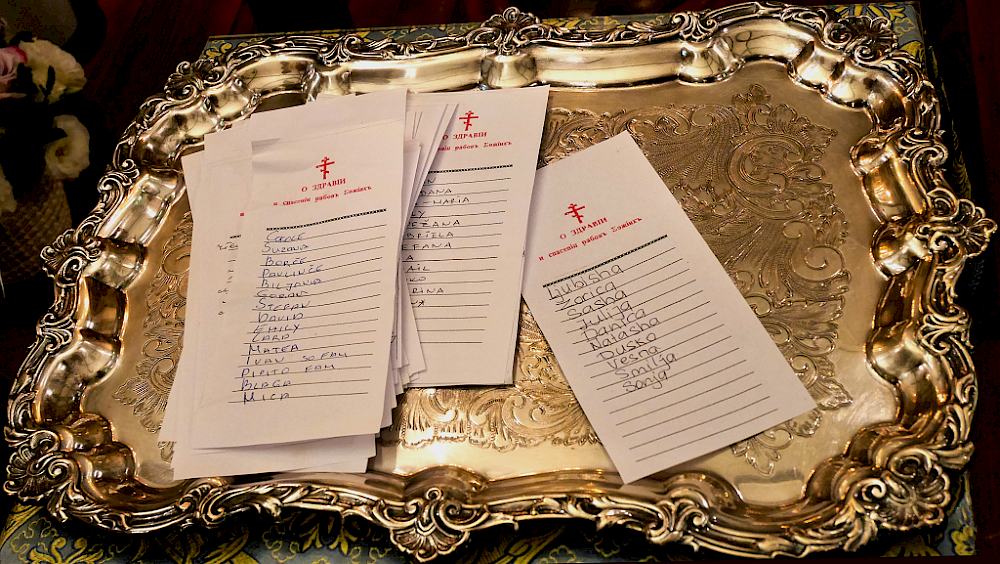 О ЗДРАВІИ
и спасенiи рабовъ Божiихъ
SUZANA
BORČE
PAVLINČE
BILJANA
GORAN
STEFAN
DAVID
EMILY
LARA
MATEA
IVAN SO FAM
PIPITO FAM
BLAGA
MICA
О ЗДРАВІИ
рабовъ Божiихъ
О ЗДРАВІИ
и спасенiи рабовъ Божiихъ
Ljubisha
Zorica
Sasha
Julija
Danica
Natasha
Dusko
Vesna
Smilja
Sonja